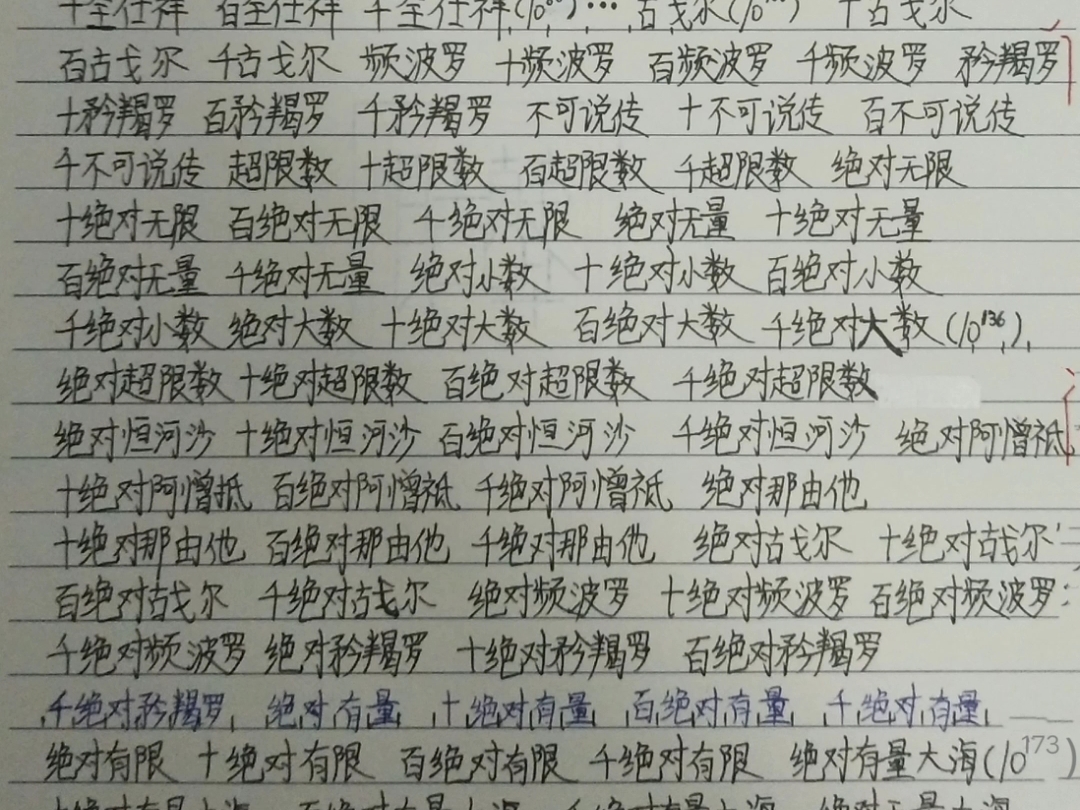 十全仕祥 百全仕祥 千全仕祥 古戈尔 十古戈尔
百古戈尔 千古戈尔 频波罗 十频波罗 百频波罗 千频波罗 矜羯罗
十矜羯罗 百矜羯罗 千矜羯罗 不可说传 十不可说传 百不可说传
千不可说传 超限数 十超限数 百超限数 千超限数 绝对无限
十绝对无限 百绝对无限 千绝对无限 绝对无量 十绝对无量
百绝对无量 千绝对无量 绝对小数 十绝对小数 百绝对小数
千绝对小数 绝对大数 十绝对大数 百绝对大数 千绝对大数(10¹³⁶),
绝对超限数 十绝对超限数 百绝对超限数 千绝对超限数
绝对恒河沙 十绝对恒河沙 百绝对恒河沙 千绝对恒河沙 绝对阿憎祗
十绝对阿憎抵 百绝对阿憎祗 千绝对阿憎祗 绝对那由他
十绝对那由他 百绝对那由他 千绝对那由他 绝对古戈尔 十绝对古戈尔
百绝对古戈尔 千绝对古戈尔 绝对频波罗 十绝对频波罗 百绝对频波罗
千绝对频波罗 绝对矜羯罗 十绝对矜羯罗 百绝对矜羯罗
千绝对矜羯罗 绝对有量 十绝对有量 百绝对有量 千绝对有量
绝对有限 十绝对有限 百绝对有限 千绝对有限 绝对有量大海(10¹⁷³)